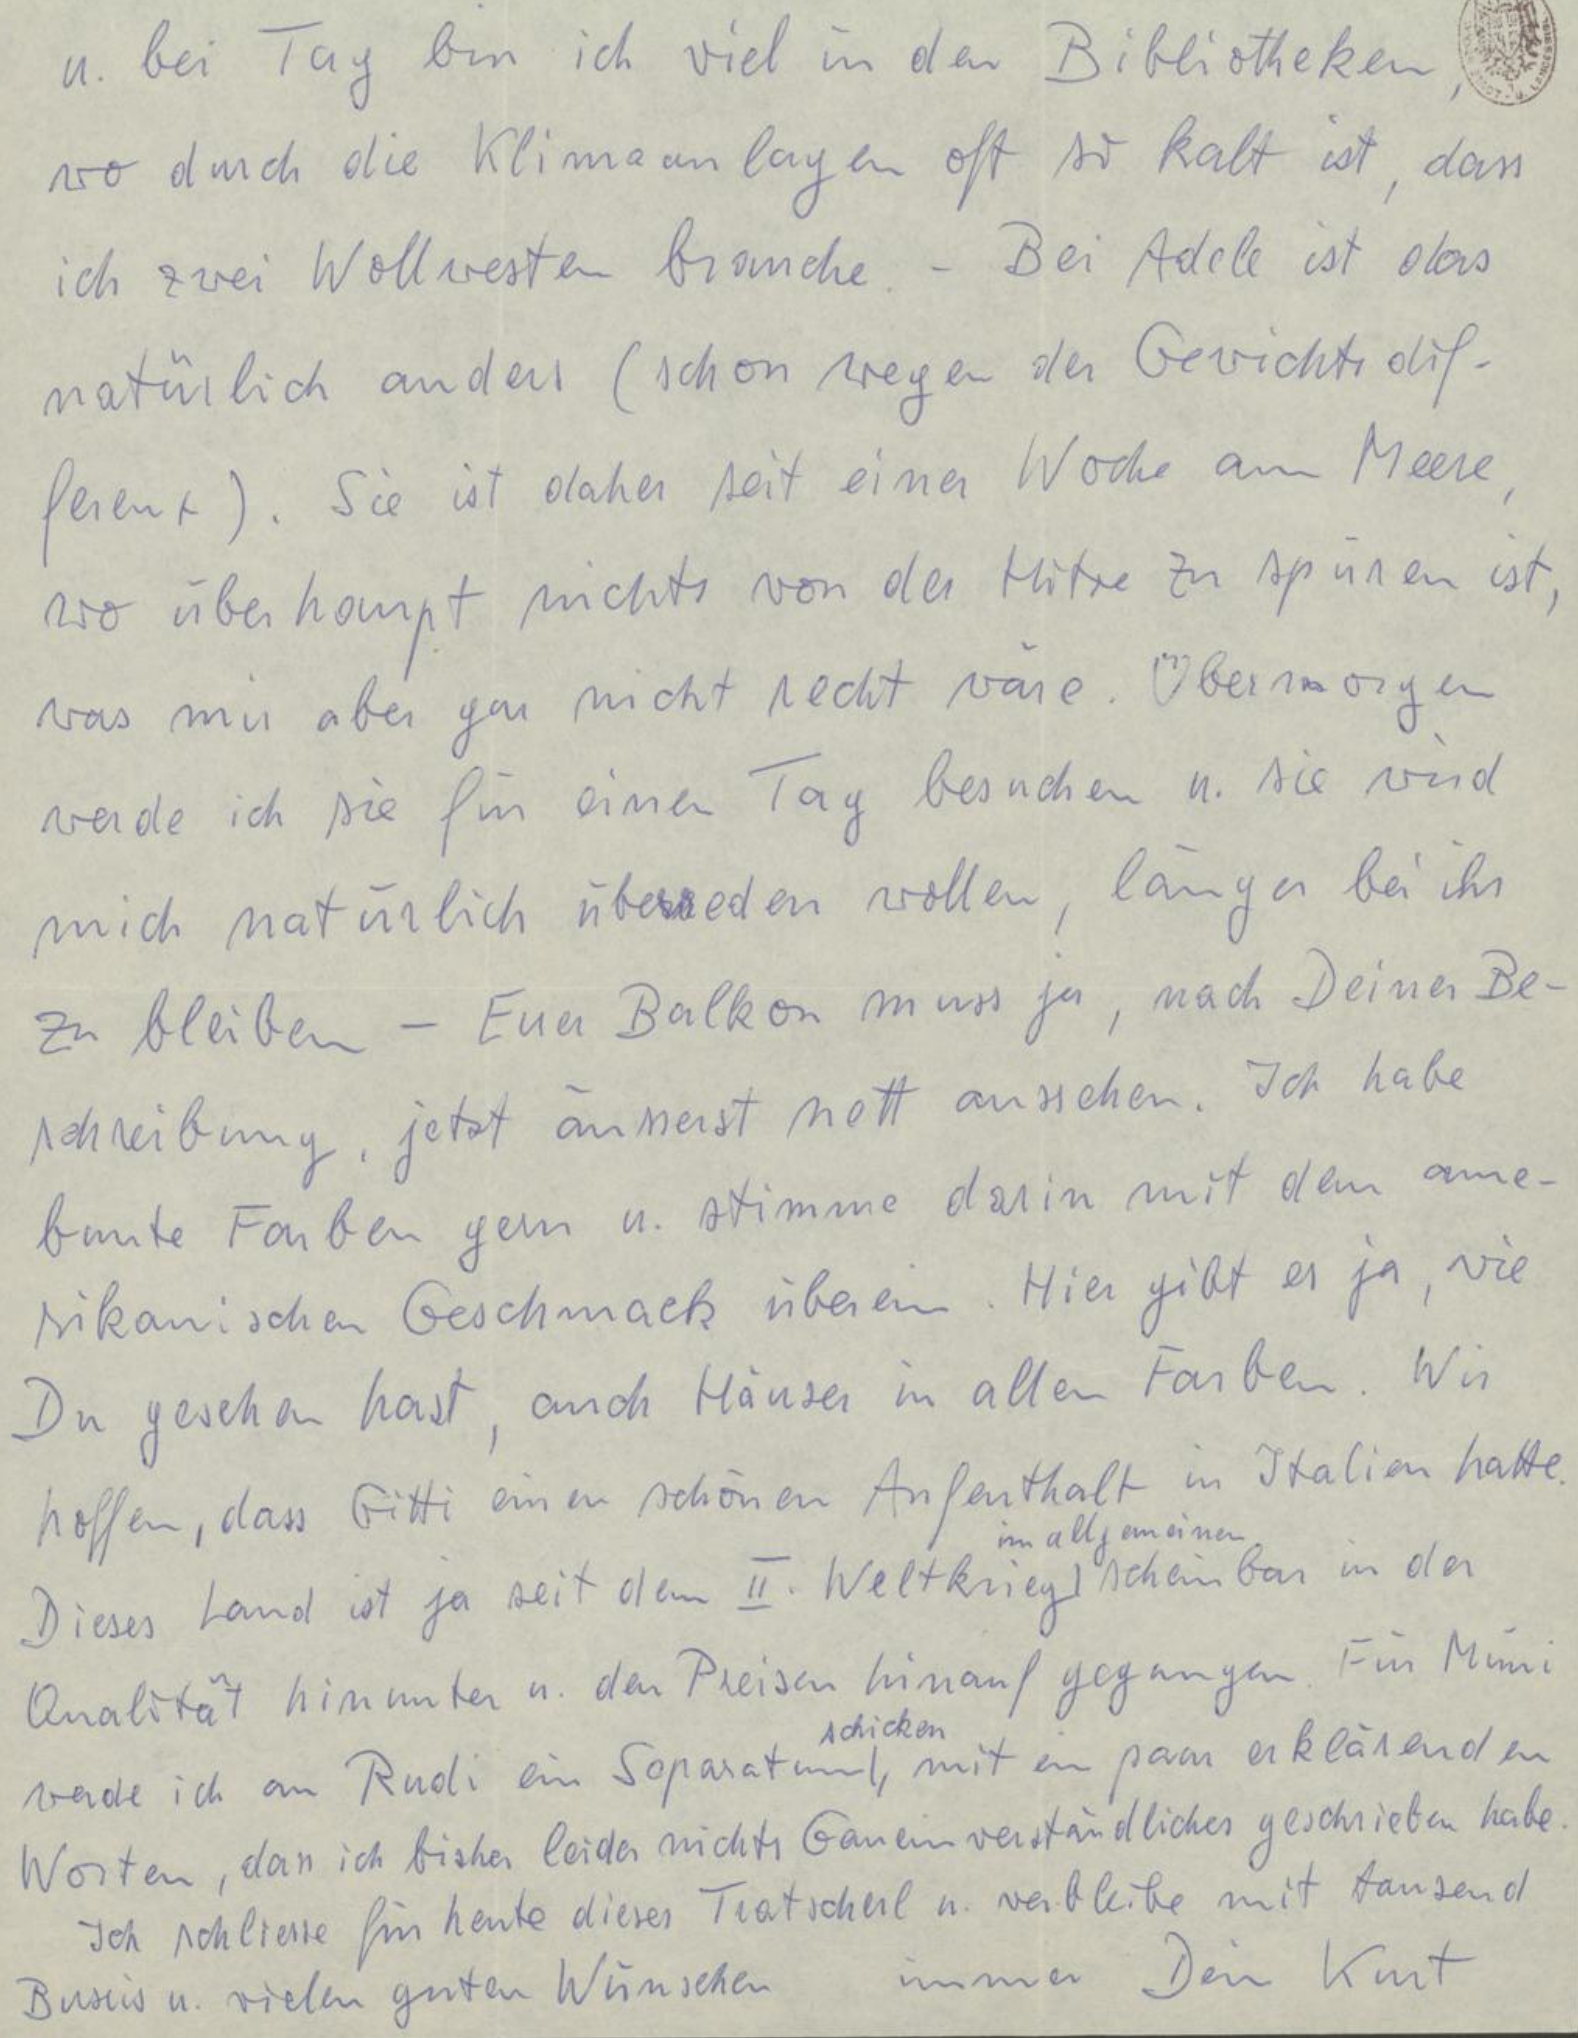 u. bei Tag bin ich viel in den Bibliotheken,
wo durch die Klimaanlagen oft so kalt ist, dass
ich zwei Wollwesten brauche. - Bei Adele ist das
natürlich anders (schon wegen der Gewichtsdif-
ferenz). Sie ist daher seit einer Woche am Meere,
wo überhaupt nichts von der Hitze zu spüren ist,
was mir aber gar nicht recht wäre. Übermorgen
werde ich sie für einen Tag besuchen u. sie wird
mich natürlich überreden wollen, länger bei ihr
zu bleiben - Euer Balkon muss ja, nach Deiner Be-
schreibung, jetzt äusserst nett aussehen. Ich habe
bunte Farben gern u. stimme darin mit dem ame-
rikanischen Geschmack überein. Hier gibt es ja, wie
Du gesehen hast, auch Häuser in allen Farben. Wir
hoffen, dass Gitti einen schönen Aufenthalt in Italien hatte.
im allgemeinen
Dieses Land ist ja seit dem II. Weltkrieg scheinbar in der
Qualität hinunter u. den Preisen hinauf gegangen. Für Mimi
schicken
werde ich an Rudi ein Separatum, mit ein paar erklärenden
Worten, dass ich bisher leider nichts Gemeinverständliches geschrieben habe.
Ich schliesse für heute dieses Tratscherl u. verbleibe mit tausend
Bussis u. vielen guten Wünschen immer Dein Kurt